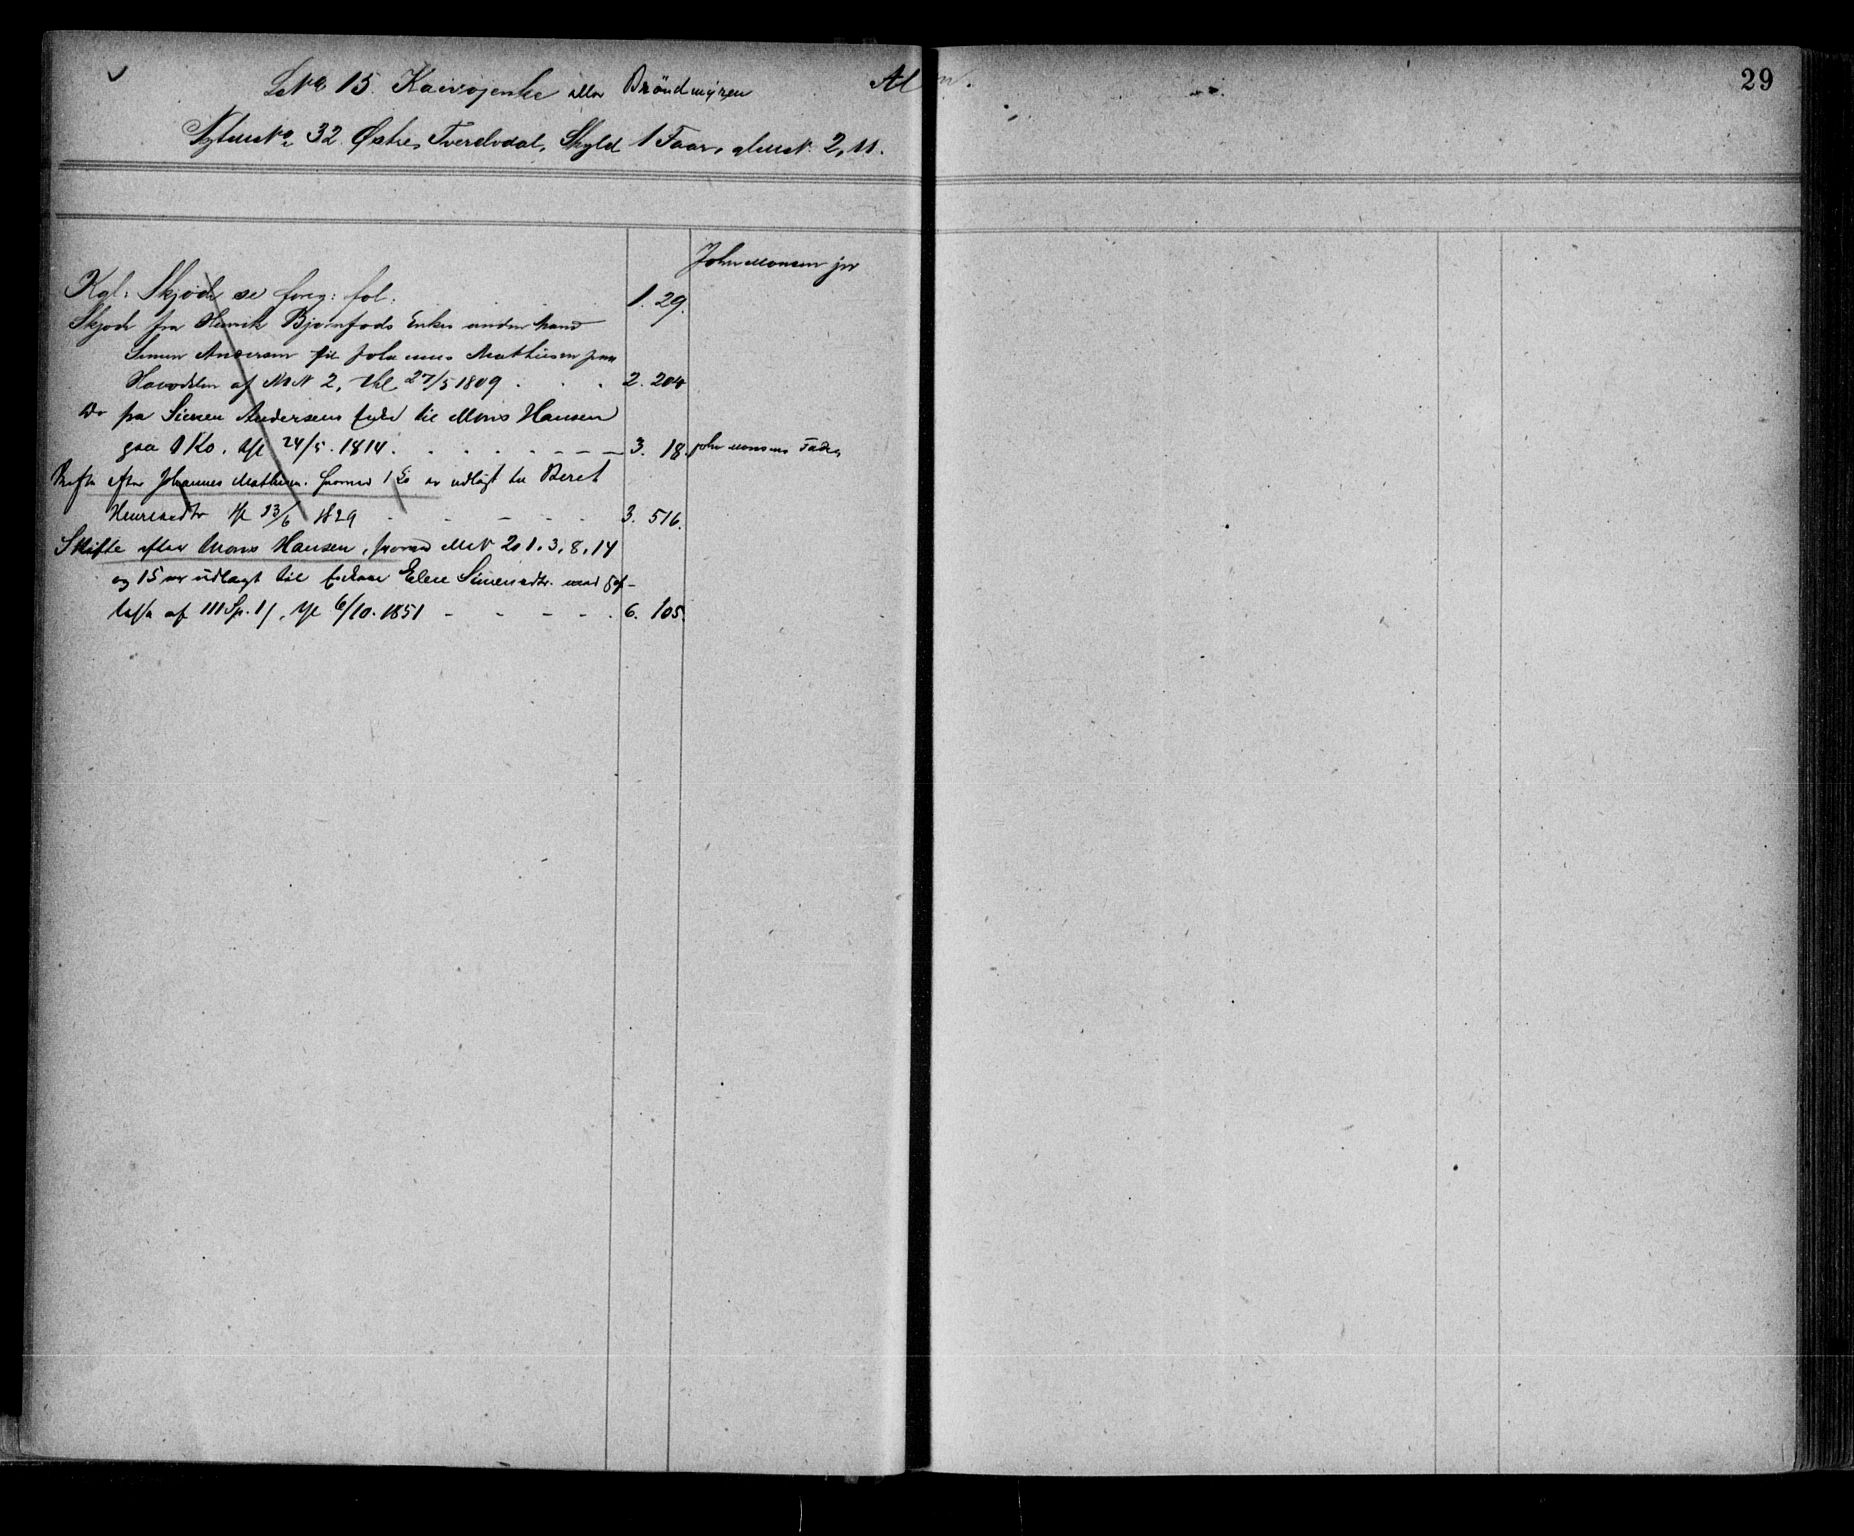 LNo 15. Kaivojenke eller Bröndmyren
Al
29
Nyt No 32 Østre Tverdvdal, Skyld 1 Faar, glmt N. 2, 11.
John Monsen jr
Kgl: Skjøde se foreg: fol: 1. 29.
Skjøde fra Henrik Bjørnfods Enkes anden mand
Simen Andersen til Johannes Mathiesen paa
Hovedelen af MN 2, thl 27/5 1809 . . . 2. 204
Do fra Simen Andersens Enke til Mons Hansen
paa 1 Ko. thl 24/5. 1814. 3. 18. John Monsens Fader
Skifte efter Johannes Mathies. hvorved er udlagt til Beret
Henriksdtr thl 23/6 1829 3. 516.
Skifte efter Mons Hansen, hvorved MN 2, 1. 3, 8, 14
og 15 er udlagt til Enken Elen Simensdtr. mod Hef-
telse af 111 Sp. 1/, thl 6/10. 1851 6. 105.